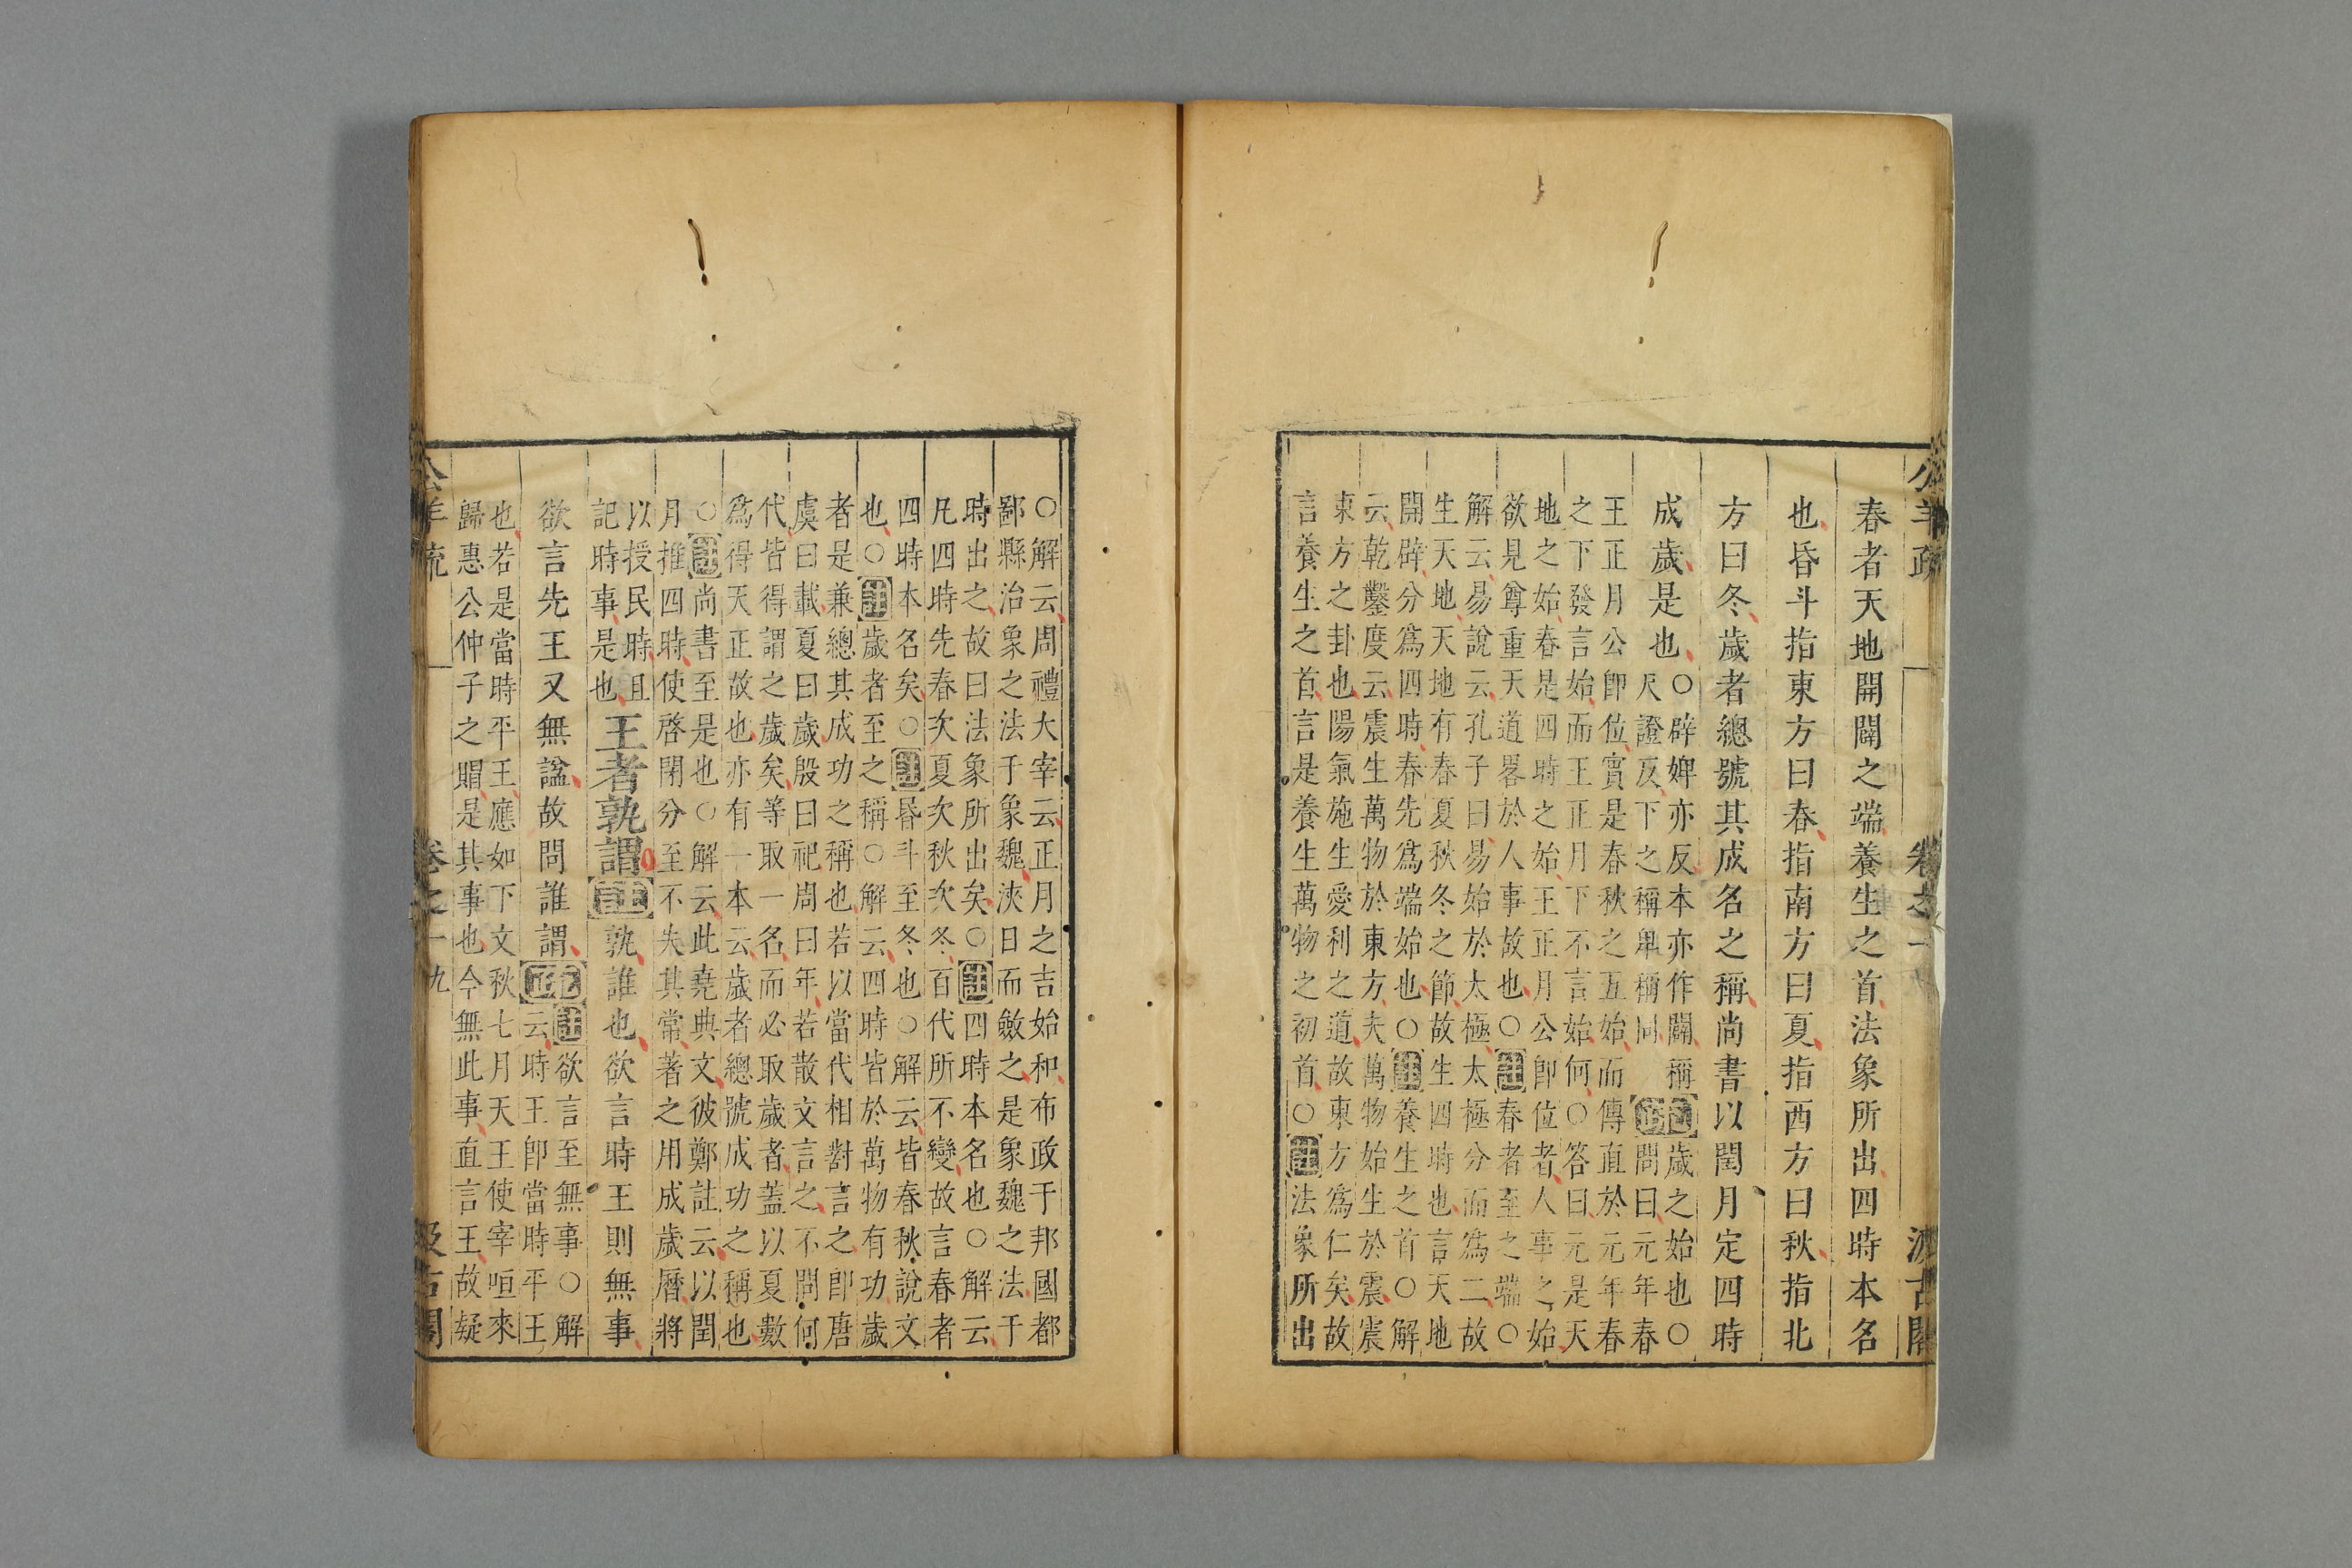 春者天地開闢之端養生之首法象所出四時本名
也昏斗指東方曰春指南方曰夏指西方曰秋指北
方曰冬歲者總號其成名之稱尚書以閏月定四時
成歲是也
○辟婢亦反本亦作闢稱
尺證反下之稱單稱同
疏歲之始也○
正問曰元年春
王正月公卽位實是春秋之五始而傳直於元年春
之下發言始而王正月下不言始何○答曰元是天
地之始春是四時之始王正月公卽位者人事之始
欲見尊重天道畧於人事故也○註春者至之端○
解云易說云孔子曰易始於太極太極分而爲二故
生天地天地有春夏秋冬之節故生四時也言天地
開辟分爲四時春先爲端始也○註養生之首○解
云乾鑿度云震生萬物於東方夫萬物始生於震震
東方之卦也陽氣施生愛利之道故東方爲仁矣故
言養生之首言是養生萬物之初首○註法象所出
○解云周禮大宰云正月之吉始和布政于邦國都
鄙縣治象之法于象魏浹日而斂之是象魏之法于
時出之故曰法象所出矣○註四時本名也○解云
凡四時先春次夏次秋次冬百代所不變故言春者
四時本名矣○註昏斗至冬也○解云皆春秋說文
也○註歲者至之稱○解云四時皆於萬物有功歲
者是兼總其成功之稱也若以當代相對言之卽唐
虞曰載夏曰歲殷曰祀周曰年若散文言之不問何
代皆得謂之歲矣等取一名而必取歲者蓋以夏數
爲得天正故也亦有一本云歲者總號成功之稱也
○註尚書至是也○解云此堯典文彼鄭註云以閏
月推四時使啓閉分至不失其常著之用成歲曆將
以授民時且
記時事是也
王者孰謂註孰誰也欲言時王則無事
欲言先王又無諡故問誰謂
疏註欲言至無事○解
正云時王卽當時平王
也若是當時平王應如下文秋七月天王使宰咺來
歸惠公仲子之賵是其事也今無此事直言王故疑
公羊疏 卷之一 九 汲古閣